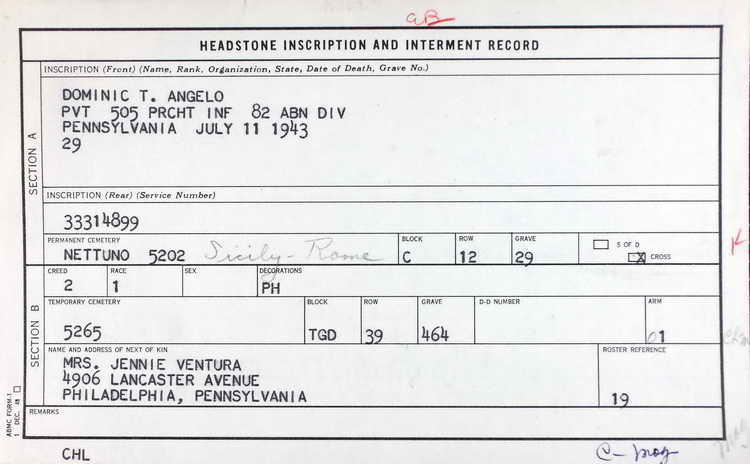 GB
HEADSTONE INSCRIPTION AND INTERMENT RECORD
SECTION A
INSCRIPTION (Front) (Name, Rank, Organization, State, Date of Death, Grave No.)
DOMINIC T. ANGELO
PVT 505 PRCHT INF 82 ABN DIV
PENNSYLVANIA JULY 11 1943
29
INSCRIPTION (Rear) (Service Number)
33314899
PERMANENT CEMETERY BLOCK ROW GRAVE
NETTUNO 5202 Sicily-Rome C 12 29
S OF D
X CROSS
SECTION B
CREED RACE SEX DECORATIONS
2 1 PH
TEMPORARY CEMETERY BLOCK ROW GRAVE D-D NUMBER ARM
5265 TGD 39 464 01
NAME AND ADDRESS OF NEXT OF KIN ROSTER REFERENCE
MRS. JENNIE VENTURA
4906 LANCASTER AVENUE
PHILADELPHIA, PENNSYLVANIA 19
REMARKS
ABMC FORM-1
1 DEC. 48
CHL